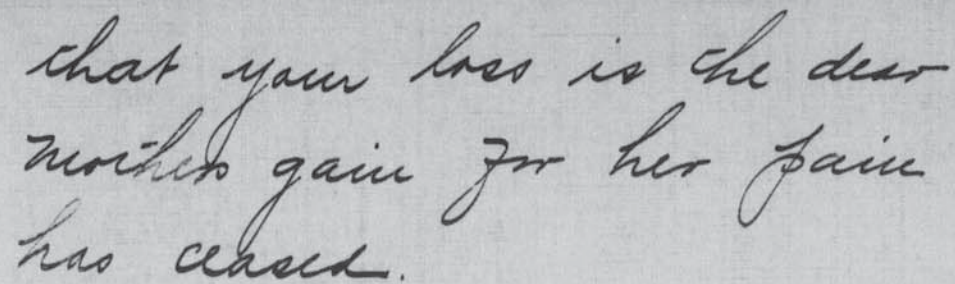 that your loss is the dear
mothers gain for her pain
has ceased.